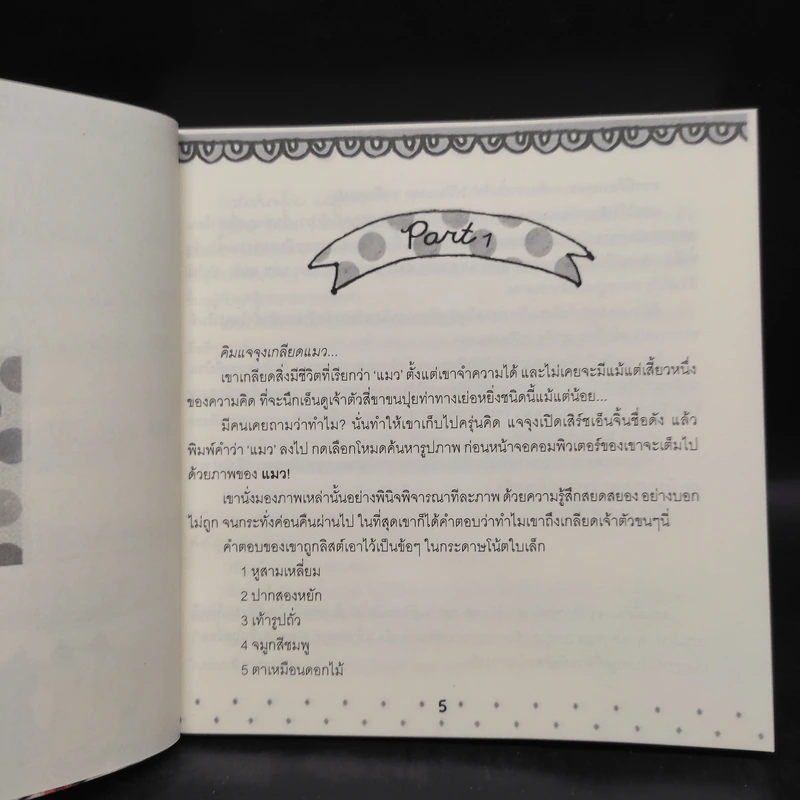 Part 1
คิมแจจุงเกลียดแมว...
เขาเกลียดสิ่งมีชีวิตที่เรียกว่า ‘แมว’ ตั้งแต่เขาจำความได้ และไม่เคยจะมีแม้แต่เสี้ยวหนึ่ง
ของความคิด ที่จะนึกเอ็นดูเจ้าตัวสี่ขาขนปุยท่าทางเย่อหยิ่งชนิดนี้แม้แต่น้อย...
มีคนเคยถามว่าทำไม? นั่นทำให้เขาเก็บไปครุ่นคิด แจจุงเปิดเสิร์ชเอ็นจิ้นชื่อดัง แล้ว
พิมพ์คำว่า ‘แมว’ ลงไป กดเลือกโหมดค้นหารูปภาพ ก่อนหน้าจอคอมพิวเตอร์ของเขาจะเต็มไป
ด้วยภาพของ แมว!
เขานั่งมองภาพเหล่านั้นอย่างพินิจพิจารณาทีละภาพ ด้วยความรู้สึกสยดสยอง อย่างบอก
ไม่ถูก จนกระทั่งค่อนคืนผ่านไป ในที่สุดเขาก็ได้คำตอบว่าทำไมเขาถึงเกลียดเจ้าตัวขนๆนี่
คำตอบของเขาถูกลิสต์เอาไว้เป็นข้อๆ ในกระดาษโน้ตใบเล็ก
1 หูสามเหลี่ยม
2 ปากสองหยัก
3 เท้ารูปถั่ว
4 จมูกสีชมพู
5 ตาเหมือนดอกไม้
5